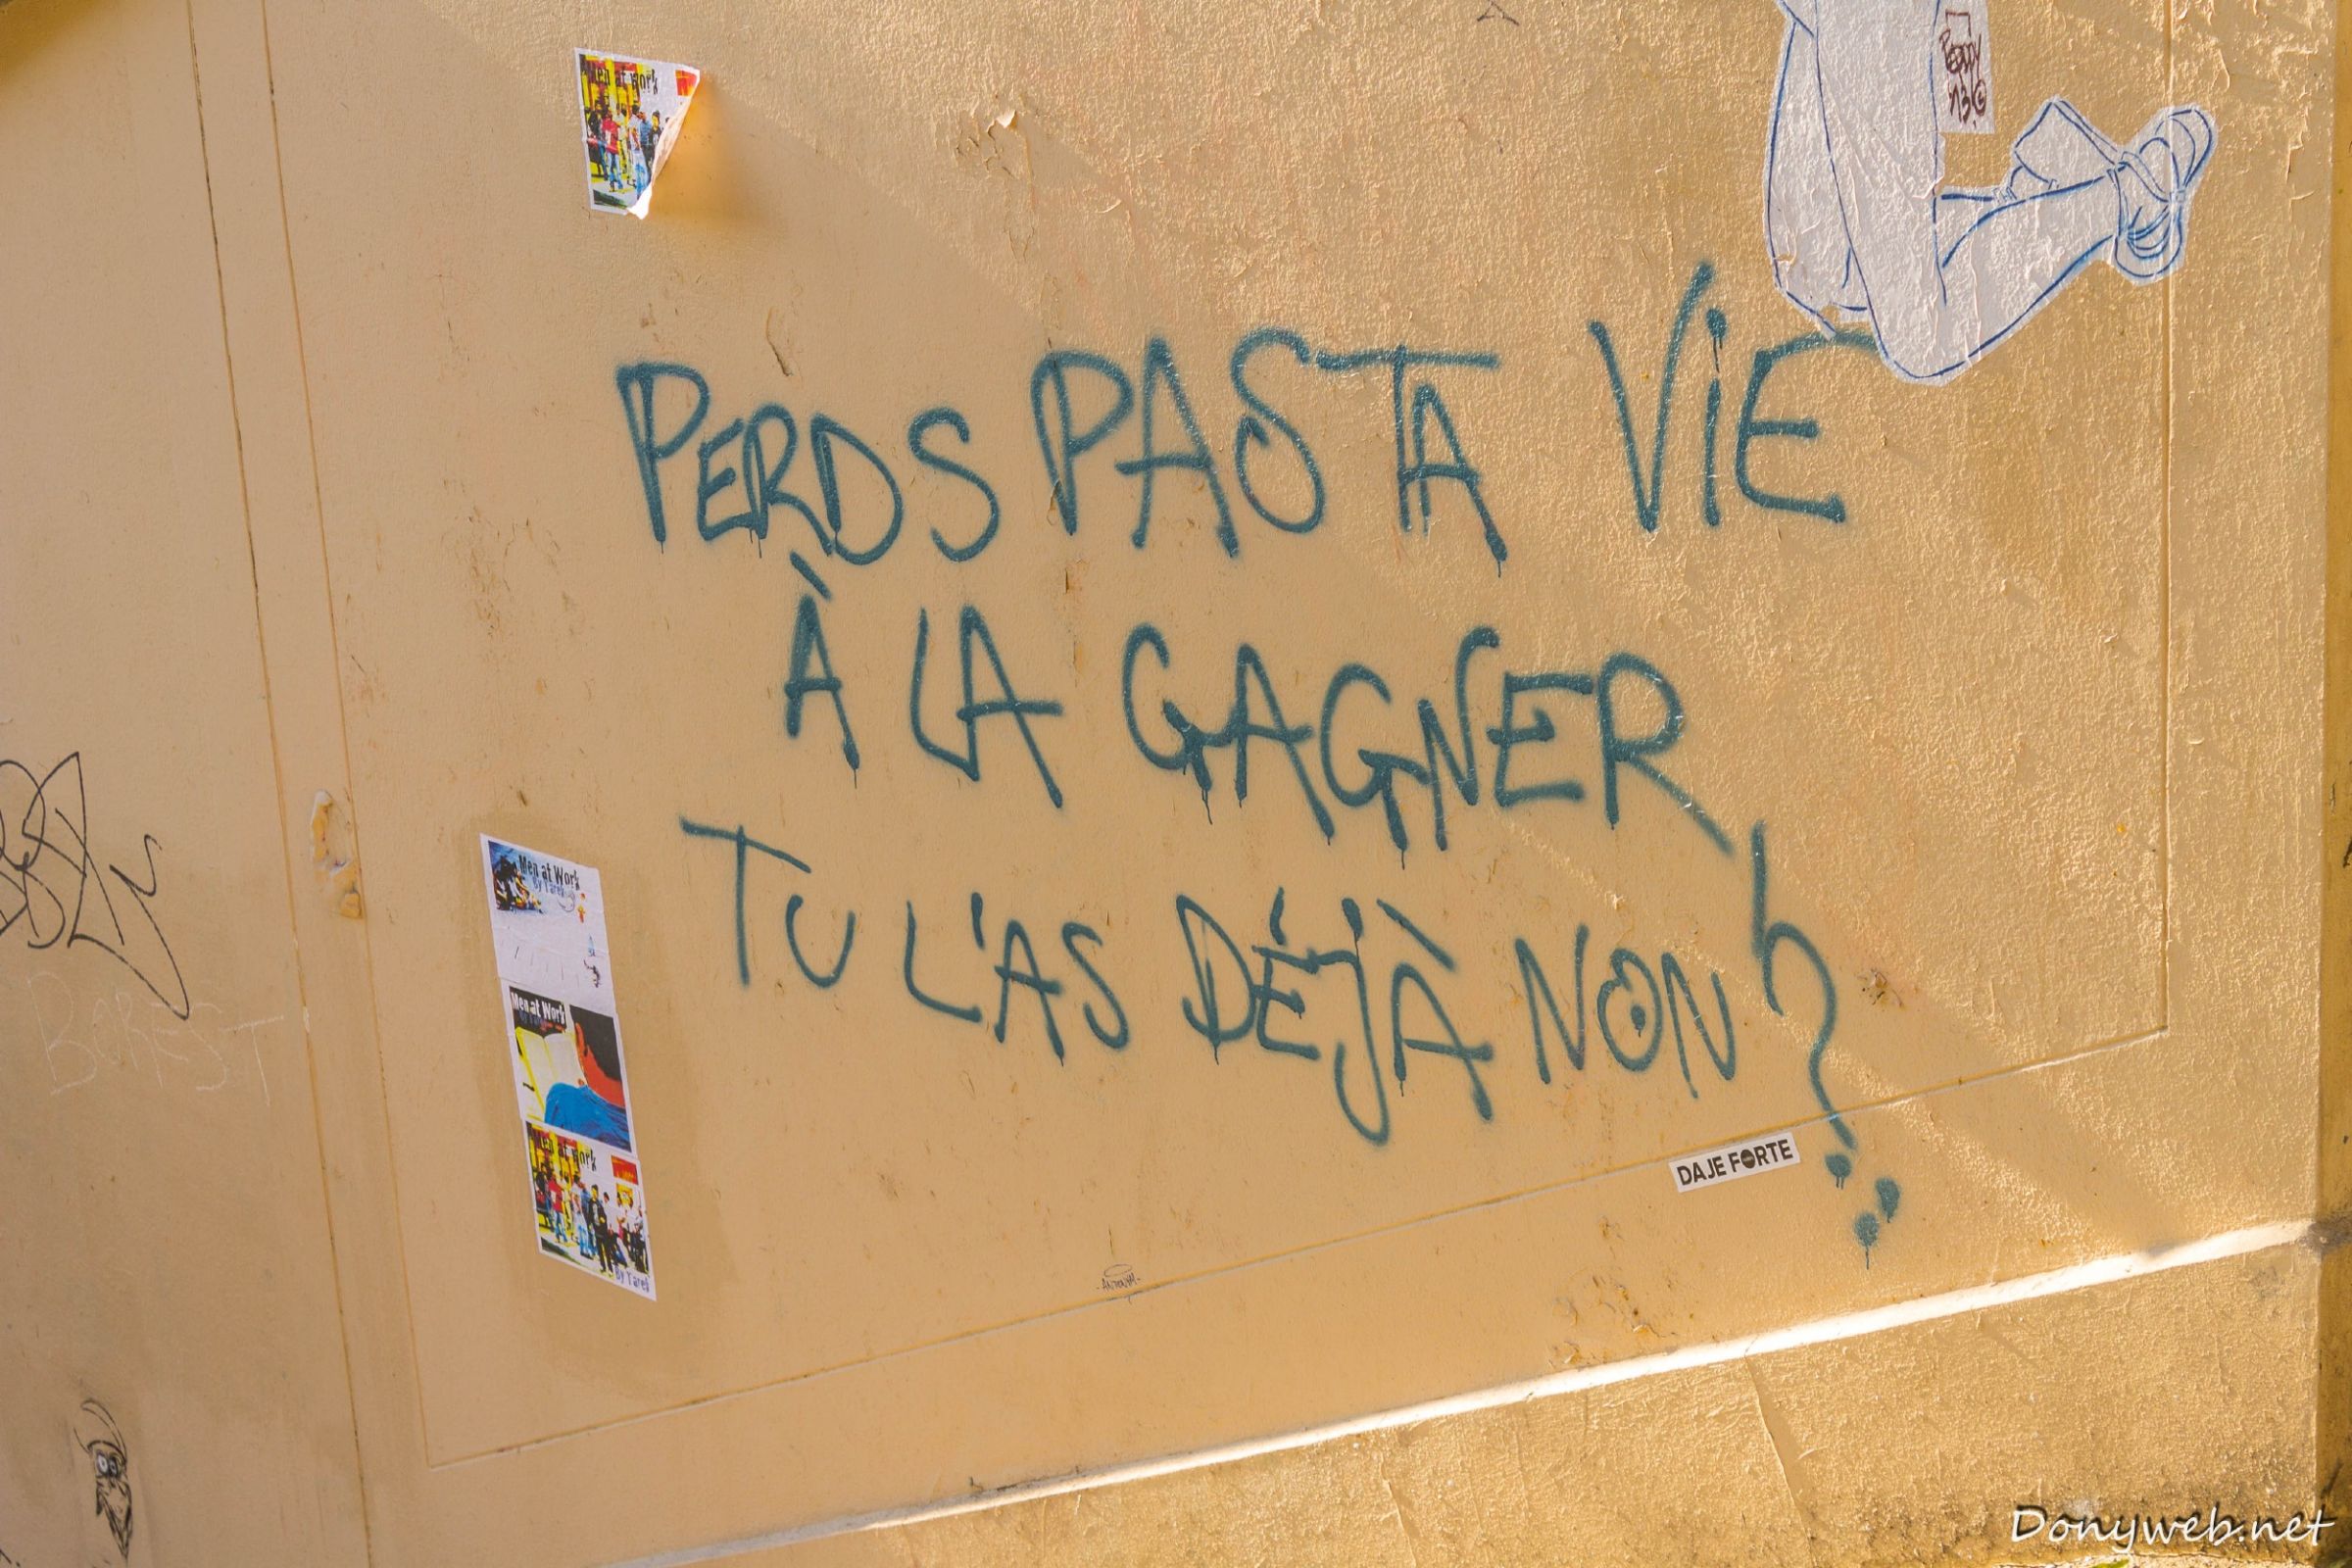 Men at work
Peppy
'13 ©
PERDS PAS TA ViE
À LA GAGNER
TU L'AS DÉJÀ NON ?
Men at Work
By Tarek
Men at Work
Men at work
By Tarek
DAJE FORTE
BERSST
Donyweb.net